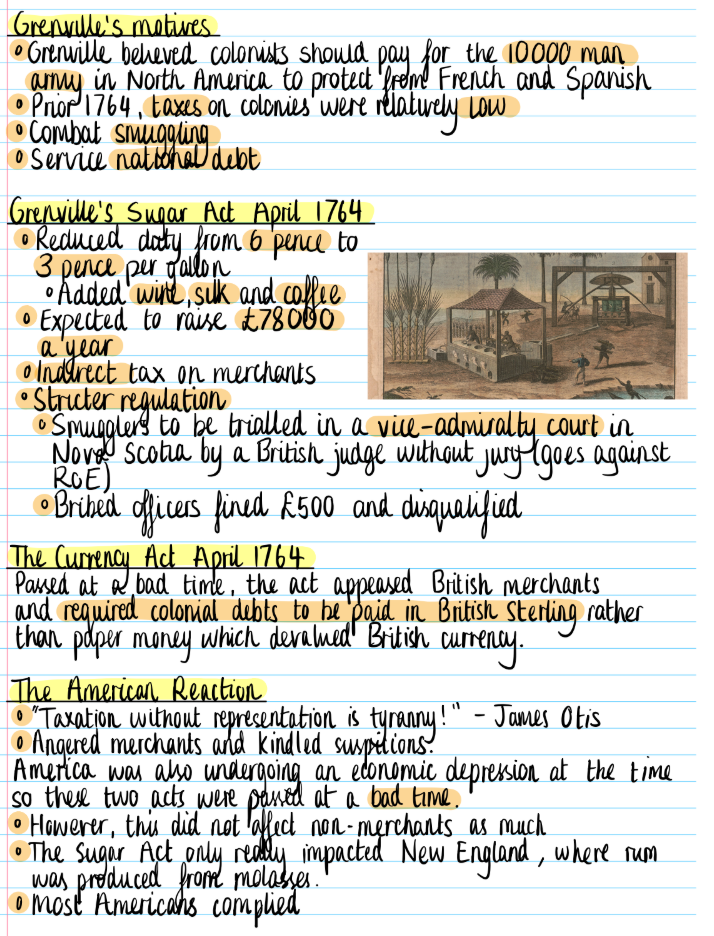 Grenville's motives
Grenville believed colonists should pay for the 10000 man
army in North America to protect from French and Spanish
Prior 1764, taxes on colonies were relatively low
Combat smuggling
Service national debt
Grenville's Sugar Act April 1764
Reduced duty from 6 pence to
3 pence per gallon
Added wine, silk and coffee
Expected to raise £78000
a year
Indirect tax on merchants
Stricter regulation
Smugglers to be trialled in a vice-admiralty court in
Nova Scotia by a British judge without jury (goes against
RoE)
Bribed officers fined £500 and disqualified
The Currency Act April 1764
Passed at a bad time, the act appeased British merchants
and required colonial debts to be paid in British Sterling rather
than paper money which devalued British currency.
The American Reaction
"Taxation without representation is tyranny!" - James Otis
Angered merchants and kindled suspicions.
America was also undergoing an economic depression at the time
so these two acts were passed at a bad time.
However, this did not affect non-merchants as much
The Sugar Act only really impacted New England, where rum
was produced from molasses.
Most Americans complied